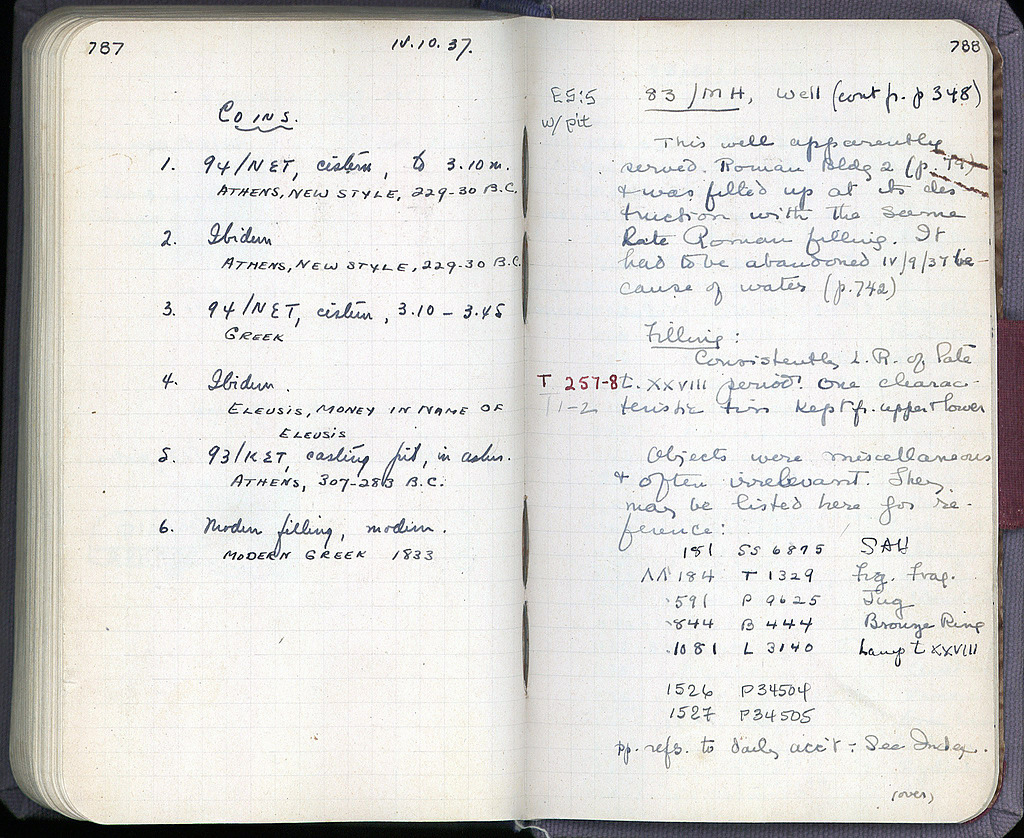 787
IV.10.37.
Coins.
1. 94/NET, cistern, to 3.10 m.
ATHENS, NEW STYLE, 229-30 B.C.
2. Ibidem
ATHENS, NEW STYLE, 229-30 B.C.
3. 94/NET, cistern, 3.10 - 3.45
GREEK
4. Ibidem.
ELEUSIS, MONEY IN NAME OF
ELEUSIS
5. 93/KET, casting pit, in ashes.
ATHENS, 307-283 B.C.
6. Modern filling, modern.
MODERN GREEK 1833
788
E5:5
w/pit
83/MH, well (cont fr. p 348)
This well apparently
served Roman Bldg 2 (p.
& was filled up at its des
truction with the same
Late Roman filling. It
had to be abandoned IV/9/37 be-
cause of water (p.742)
Filling:
Consistently L.R. of late
T 257-8 t. XXVIII period. One charac-
T1-2 teristic tin kept fr. upper & lower
Objects were miscellaneous
& often irrelevant. They
may be listed here for re-
ference:
181 SS 6875 SAH
ΛΛ 184 T 1329 Fig. Frag.
591 P 9625 Jug
844 B 444 Bronze Ring
1081 L 3140 Lamp t XXVIII
1526 P34504
1527 P34505
pp. refs. to daily acc't - See Index.
(over)